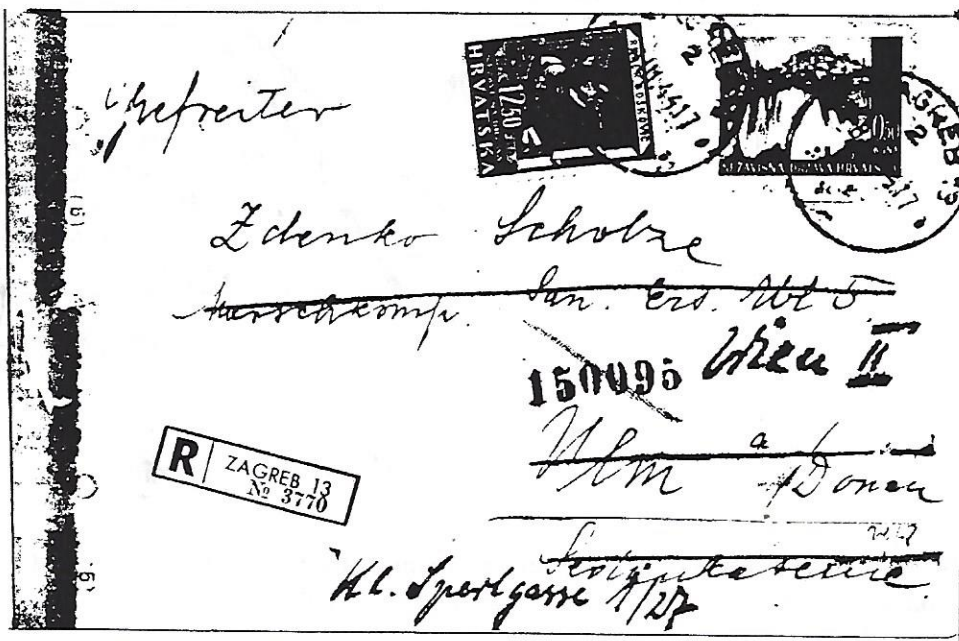 Gefreiter
12.50
HRVATSKA
ZAGREB
2
0,50
NEZAVISNA DRŽAVA HRVATSKA
Zdenko Scholze
Marschkomp. San. Ers. Abt 5
150095 Wien II
Ulm a/Donau
R ZAGREB 13
№ 3770
Kl. Sperlgasse 1/27